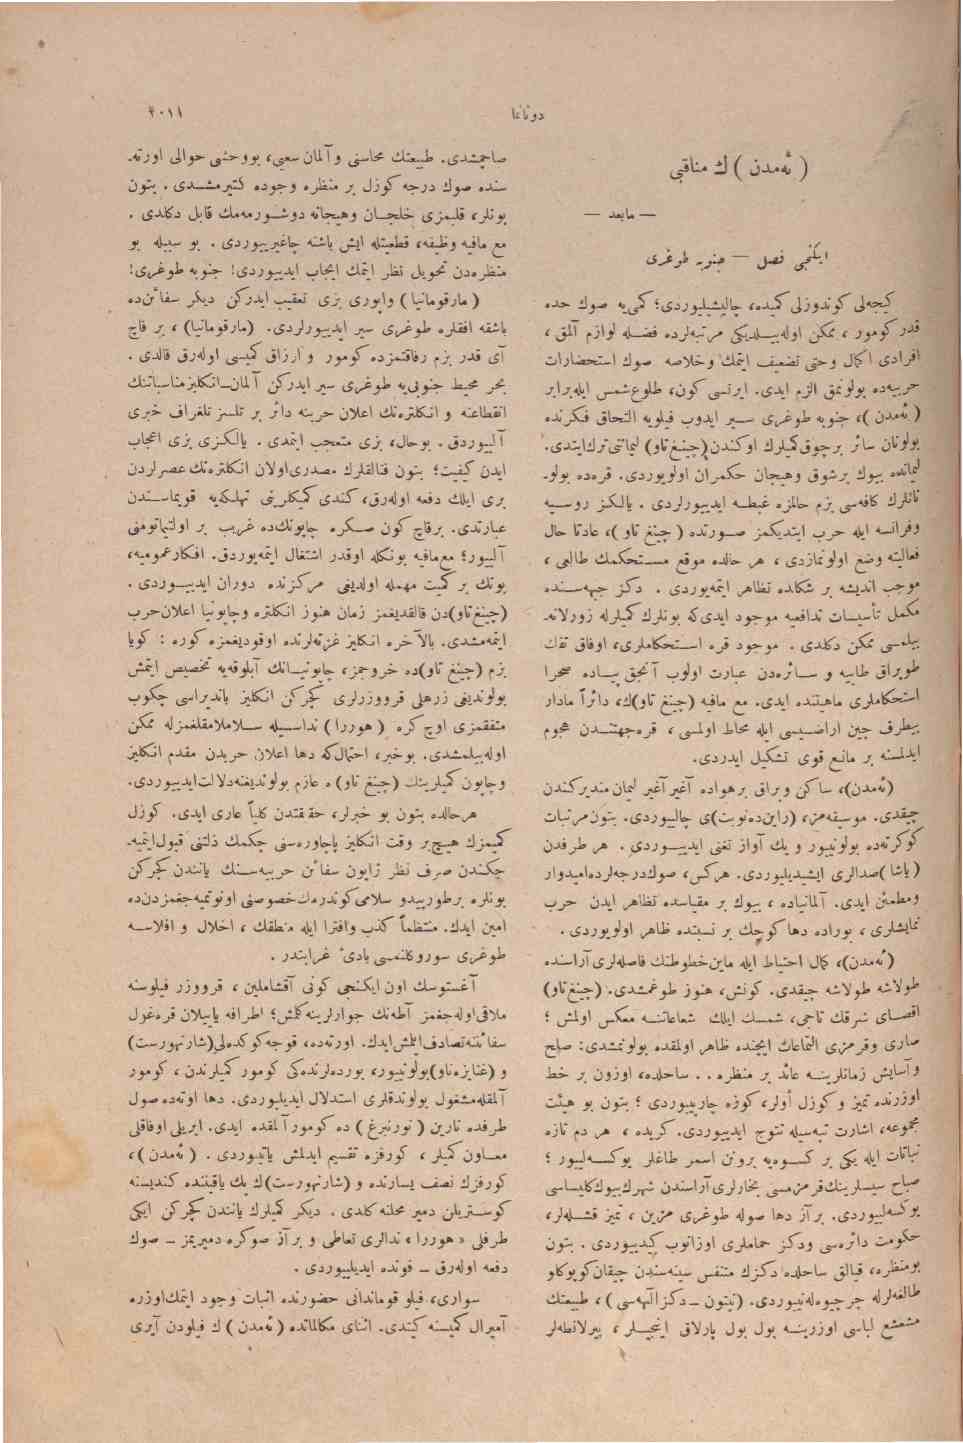 دوننما
٢٠١١
( ئه‌مدن ) ك مناقبی
— مابعد —
ایكنجی فصل — جنوبه طوغری
كیجه‌لی كوندوزلی كمیده، چالیشیلیوردی؛ كمی‌یه صوك حده
قدر كومور ، ممكن اوله‌بیــلدیكی مرتبه‌لرده فضــله لوازم آلمق ،
افرادی اكمال وحتی تضعیف ایتمك وخلاصه صوك استحضارات
حربیه‌ده بولونمق الزم ایدی. ایرتسی كون، طلوع شمس ایله برابر
( ئه‌مدن )، جنوبه طوغری ســیر ایدوب فیلویه التحاق فكرنده
بولونان سائر برچوق كمیلرك اوكندن (چینغ تاو) لیماننی ترك ایتدی.
لیمانده بیوك برشوق وهیجان حكمران اولویوردی. قره‌ده بولو-
نانلرك كافه‌سی بزم حالمزه غبطــه ایدییورلردی . یالكز روسـیه
وفرانسه ایله حرب ایتدیكمز صــورتده ( چینغ تاو )، عادتا حال
فعالیته وضع اولونمازدی ، هر حالده موقع مســتحكمك طالعی ،
موجب اندیشه بر شكلده تظاهر ایتمه‌یوردی . دكز جهه‌ســنده
مكمل تأسیسات تدافعیه موجود ایدی‌كه بونلرك كمیلرله زورلانه-
بیلمسی ممكن دكلدی . موجود قره اســتحكاملری، اوفاق تفك
طوپراق طابیه و ســائره‌دن عبارت اولوب آنجق پیــاده صحرا
استحكاملری ماهیتنده ایدی. مع مافیه (چینغ تاو)ك، دائراً مادار
بیطرف چین اراضــیسی ایله محاط اولمسی ، قره جهتنــدن هجوم
ایدلسنه بر مانــع قوی تشكیل ایدردی.
(ئه‌مدن)، ساكن وبراق برهواده آغیر آغیر لیمان مندیركندن
چیقدی. موسیقه‌مز، (راین‌ده نوبت)ی چالییوردی. بتون مرتبات
كوكرته‌ده بولونیور و یك آواز تغنی ایدییــوردی . هر طرفدن
( یاشا )صدالری ایشیدیلیوردی. هركس، صوك درجه‌لرده امیدوار
ومطمئن ایدی. آلمانیاده ، بیوك بر مقیاسده تظاهر ایدن حرب
نمایشلری ، بوراده دها كوچك بر نسبتده ظاهر اولویوردی .
(ئه‌مدن)، كمال احتیاط ایله ماین خطوطنك فاصله‌لری آراسنده
طولاشه طولاشه چیقدی. كونش، هنوز طوغمشدی. (چینغ تاو)
اقصــای شرقك تاجی، شمسك ایلك شعاعاتنــه معكس اولمش ؛
صاری وقرمزی التماعات ایچنده ظاهر اولمقده بولونمشدی: صلح
وآسایش زمانلرینــه عائد بر منظره . . ساحلده، اوزون بر خط
اوزرنده تمیز و كوزل أولر، كوزه چارپییوردی ؛ بتون بو هیئت
مجموعه، اشارت تپه‌سیله تتوج ایدییوردی. كریده ، هر دم تازه
نباتات ایله یكی بر كســوه‌یه برونن اسمر طاغلر یوكســه‌لییور ؛
صباح سیــلرینك قرمزمسی بخارلری آراسندن شهرك بیوك كلیساسی
یوكسه‌لییوردی. برآز دها صوله طوغری مزین ، تمیز قشــله‌لر،
حكومت دائره‌سی ودكز حماملری اوزانوب كیدییوردی . بتون
بومنظره، قیالق ساحلده دكزك متنفس سینه‌سندن چیقان كوپوكلو
طالغه‌لرله چرچیوه‌له‌نییوردی. (نپتون ــ دكز الهه‌سی)، طبیعتك
مشعشع لباسی اوزرینــه بول بول پارلاق اینجیــلر ، پیرلانطه‌لر
صاچمشدی. طبیعتك محاسنی وآلمان سعیی، بو وحشی حوالی اورته-
سنده صوك درجه كوزل بر منظره وجوده كتیرمشــدی . بتون
بونلر، قلبمزی خلجــان وهیجانه دوشــورمه‌مك قابل دكلدی .
مع مافیه وظیفه، قطعیتله ایش باشنه چاغیرییوردی . بو سببله بو
منظره‌دن تحویل نظر ایتمك ایجاب ایدییوردی! جنوبه طوغری!
( ماركومانیا ) واپوری بزی تعقیب ایدركن دیكر سفائن‌ده
باشقه افقلره طوغری سیر ایدییورلردی. (مارقومانیا) ، بر قاچ
آی قدر بزم رفاقتمزده كومور و ارزاق كمیسی اوله‌رق قالدی .
بحر محیط جنوبی‌یه طوغری سیر ایدركن آلمان ــ انكلیز مناسباتنك
انقطاعنه و انكلتره‌نك اعلان حربنه دائر بر تلسز تلغراف خبری
آلییوردق . بوحال، بزی متعجب ایتمدی . یالكــزی بزی اعجاب
ایدن كیفیت؛ بتون فنالقلرك مصدری اولان انكلتره‌نك عصرلردن
بری ایلك دفعه اوله‌رق، كندی كمیكلرینی تهلكه‌یه قویماســندن
عبارتدی. برقاچ كون صــكره چاپونك‌ده غریب بر اولتیماتومنی
آلییور؛ مع مافیه بونكله اوقدر اشتغال ایتمه‌یوردق. افكار عمومیه،
بونك بر كمیت مهمله اولدیغی مركزنده دوران ایدییــوردی .
(چینغ تاو)دن قالقدیغمز زمان هنوز انكلتره وچاپونیا اعلان حرب
ایتمه‌مشدی. بالآخره انكلیز غزته‌لرنده اوقودیغمزه كوره : كویا
بزم (چینغ تاو)ده خروجمز، چاپونیــانك آبلوقه‌یه تخصیص ایتمش
بولوندیغی زرهلی قروووزرلری كچركن انكلیز باندیراسی چكوب
متفقمزی اوچ كره ( هوررا ) نداسـیله ســلاملامقلغمزله ممكن
اوله‌بیلمشدی. بوخبر، احتمال‌كه دها اعلان حربدن مقدم انكلیز
وچاپون كمیلرینك (چینغ تاو) ه عازم بولوندیغنه دلالت ایدییوردی.
هرحالده بتون بو خبرلر، حقیقتدن كلیاً عاری ایدی. كوزل
كمیمزك هیــچ بر وقت انكلیز پاچاوره‌سنی چكمك ذلتنی قبول ایتمیه-
جكندن صرف نظر ژاپون سفائن حربیه‌ســنك یانندن كچركن
بونلره برطورپیدو سلامی كوندرمك خصوصنی اونوتمیه‌جغمزدن‌ده
امین ایدك. منتظماً كذب وافترا ایله منطقك ، اخلال و افلاســه
طوغری سوروكلنمسی بادئ غرابتدر .
آغستوسك اون ایكنجی كونی آقشاملین ، قرووزر فیلوسنه
ملاقی اوله‌جغمز آطه‌نك جوارلرینه كلمش؛ اطرافه یاییلان قره‌غول
سفائننه تصادف ایتمش ایدك. اورته‌ده، قوجه كوكده‌لی (شارنهورست)
و (غنایزه‌ناو) بولونییور، بورده‌لرنده‌كی كومور كمیلرندن ، كومور
آلمقله مشغول بولوندقلری استدلال ایدیلییوردی. دها اوته‌ده صول
طرفده نارین ( نورنبرغ ) ده كومور آلمقده ایدی. ایریلی اوفاقلی
معــاون كمیلر ، كورفزه تقسیم ایدلمش یاتییوردی . ( ئه‌مدن ) ،
كورفزك نصف یسارنده و (شارنهورست)ك یك یاقیننده كندیسنه
كوســتریلن دمیر محلنه كلدی . دیكر كمیلرك یانندن كچركن ایكی
طرفلی « هوررا » ندالری تعاطی و بر آز صوكره دمیریمز ــ صوك
دفعه اوله‌رق ــ فونده ایدیلییوردی .
سواری، فیلو قوماندانی حضورنده اثبات وجود ایتمك اوزره
آمیرال كمیسنه كیتدی. اثنای مكالماتده (ئه‌مدن ) ك فیلودن آیری